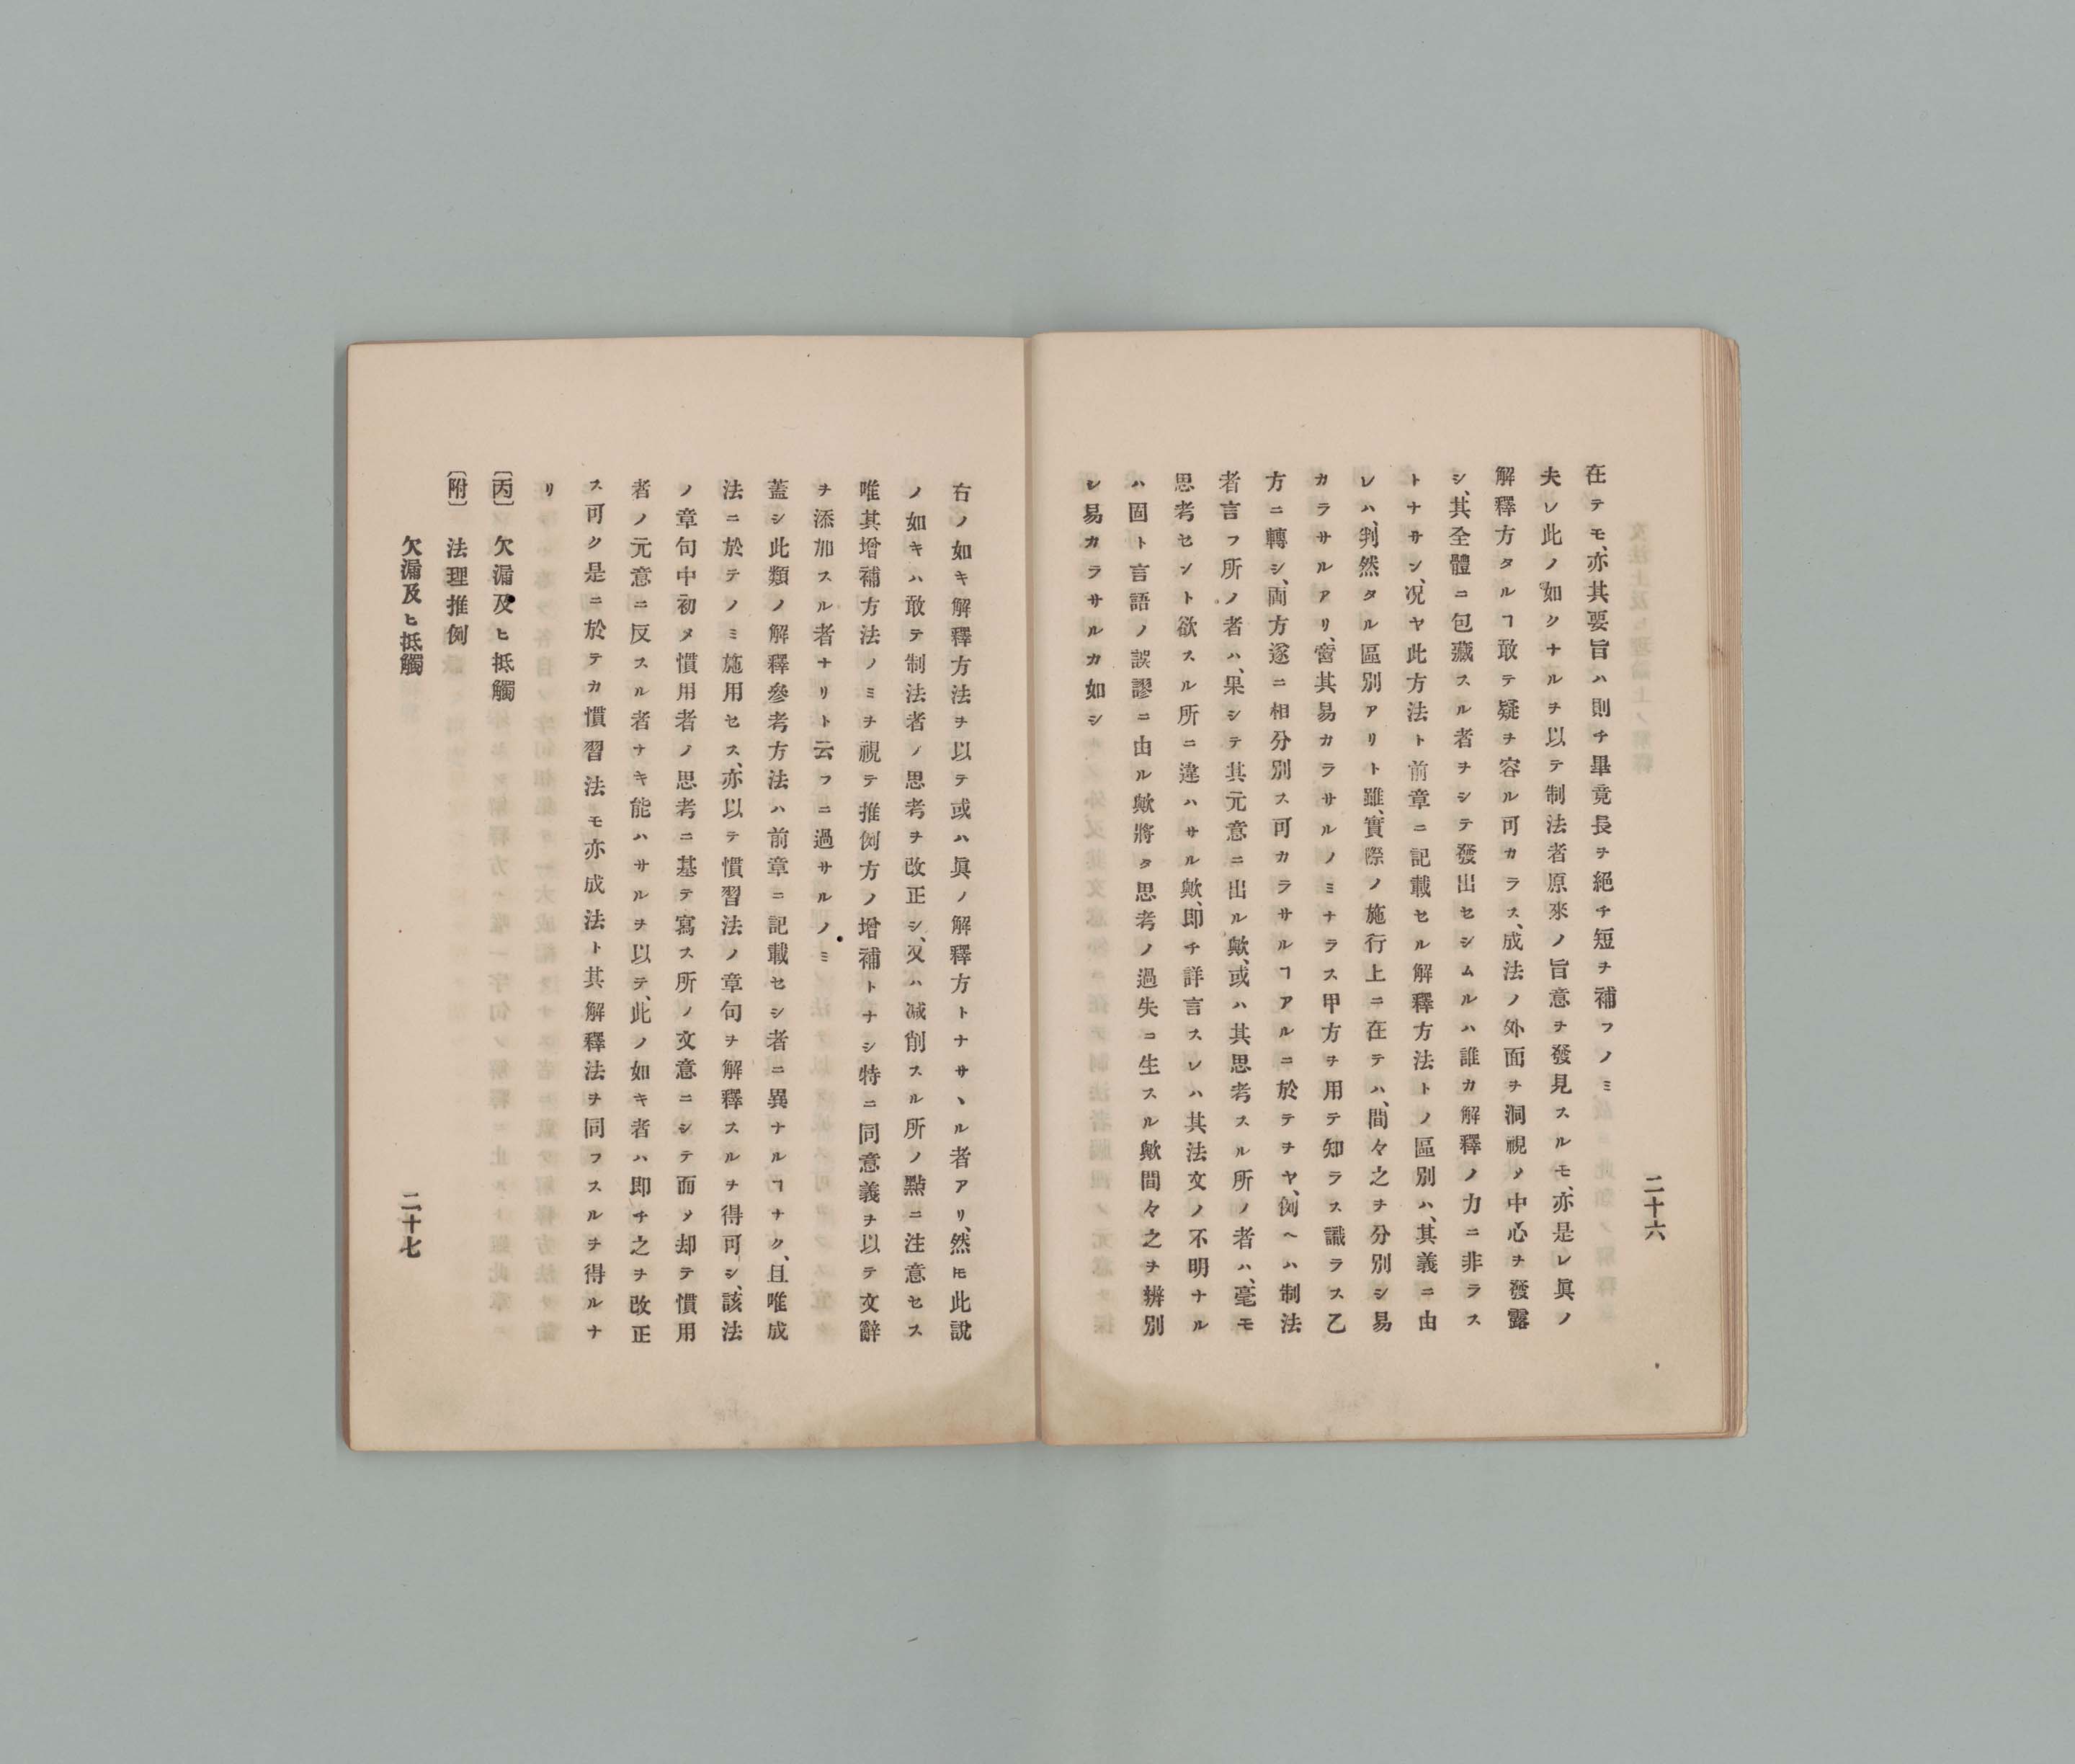 二十六
在テモ、亦其要旨ハ則チ畢竟長ヲ絕チ短ヲ補フノミ
夫レ此ノ如クナルヲ以テ制法者原來ノ旨意ヲ發見スルモ、亦是レ眞ノ
解釋方タルヿ敢テ疑ヲ容ル可カラス、成法ノ外面ヲ洞視シ中心ヲ發露
シ、其全體ニ包藏スル者ヲシテ發出セシムルハ誰カ解釋ノ力ニ非ラス
トナサン、况ヤ此方法ト前章ニ記載セル解釋方法トノ區別ハ、其義ニ由
レハ、判然タル區別アリト雖、實際ノ施行上ニ在テハ、間々之ヲ分別シ易
カラサルアリ、啻其易カラサルノミナラス甲方ヲ用テ知ラス識ラス乙
方ニ轉シ、両方遂ニ相分別ス可カラサルヿアルニ於テヲヤ、例ヘハ制法
者言フ所ノ者ハ、果シテ其元意ニ出ル歟、或ハ其思考スル所ノ者ハ、毫モ
思考セント欲スル所ニ違ハサル歟、即チ詳言スレハ其法文ノ不明ナル
ハ固ト言語ノ誤謬ニ由ル歟將タ思考ノ過失コ生スル歟間々之ヲ辨別
シ易カラサルカ如シ
右ノ如キ解釋方法ヲ以テ或ハ眞ノ解釋方トナサヽル者アリ、然𪜈此說
ノ如キハ敢テ制法者ノ思考ヲ改正シ、又ハ减削スル所ノ點ニ注意セス
唯其增補方法ノミヲ視テ推例方ノ增補トナシ特ニ同意義ヲ以テ文辭
ヲ添加スル者ナリト云フニ過サルノミ
蓋シ此類ノ解釋參考方法ハ前章ニ記載セシ者ニ異ナルヿナク、且唯成
法ニ於テノミ施用セス、亦以テ慣習法ノ章句ヲ解釋スルヲ得可シ、該法
ノ章句中初メ慣用者ノ思考ニ基テ寫ス所ノ文意ニシテ而メ却テ慣用
者ノ元意ニ反スル者ナキ能ハサルヲ以テ、此ノ如キ者ハ即チ之ヲ改正
ス可ク是ニ於テカ慣習法モ亦成法ト其解釋法ヲ同フスルヲ得ルナ
リ
〔丙〕 欠漏及ヒ抵觸
〔附〕 法理推例
欠漏及ヒ抵觸
二十七